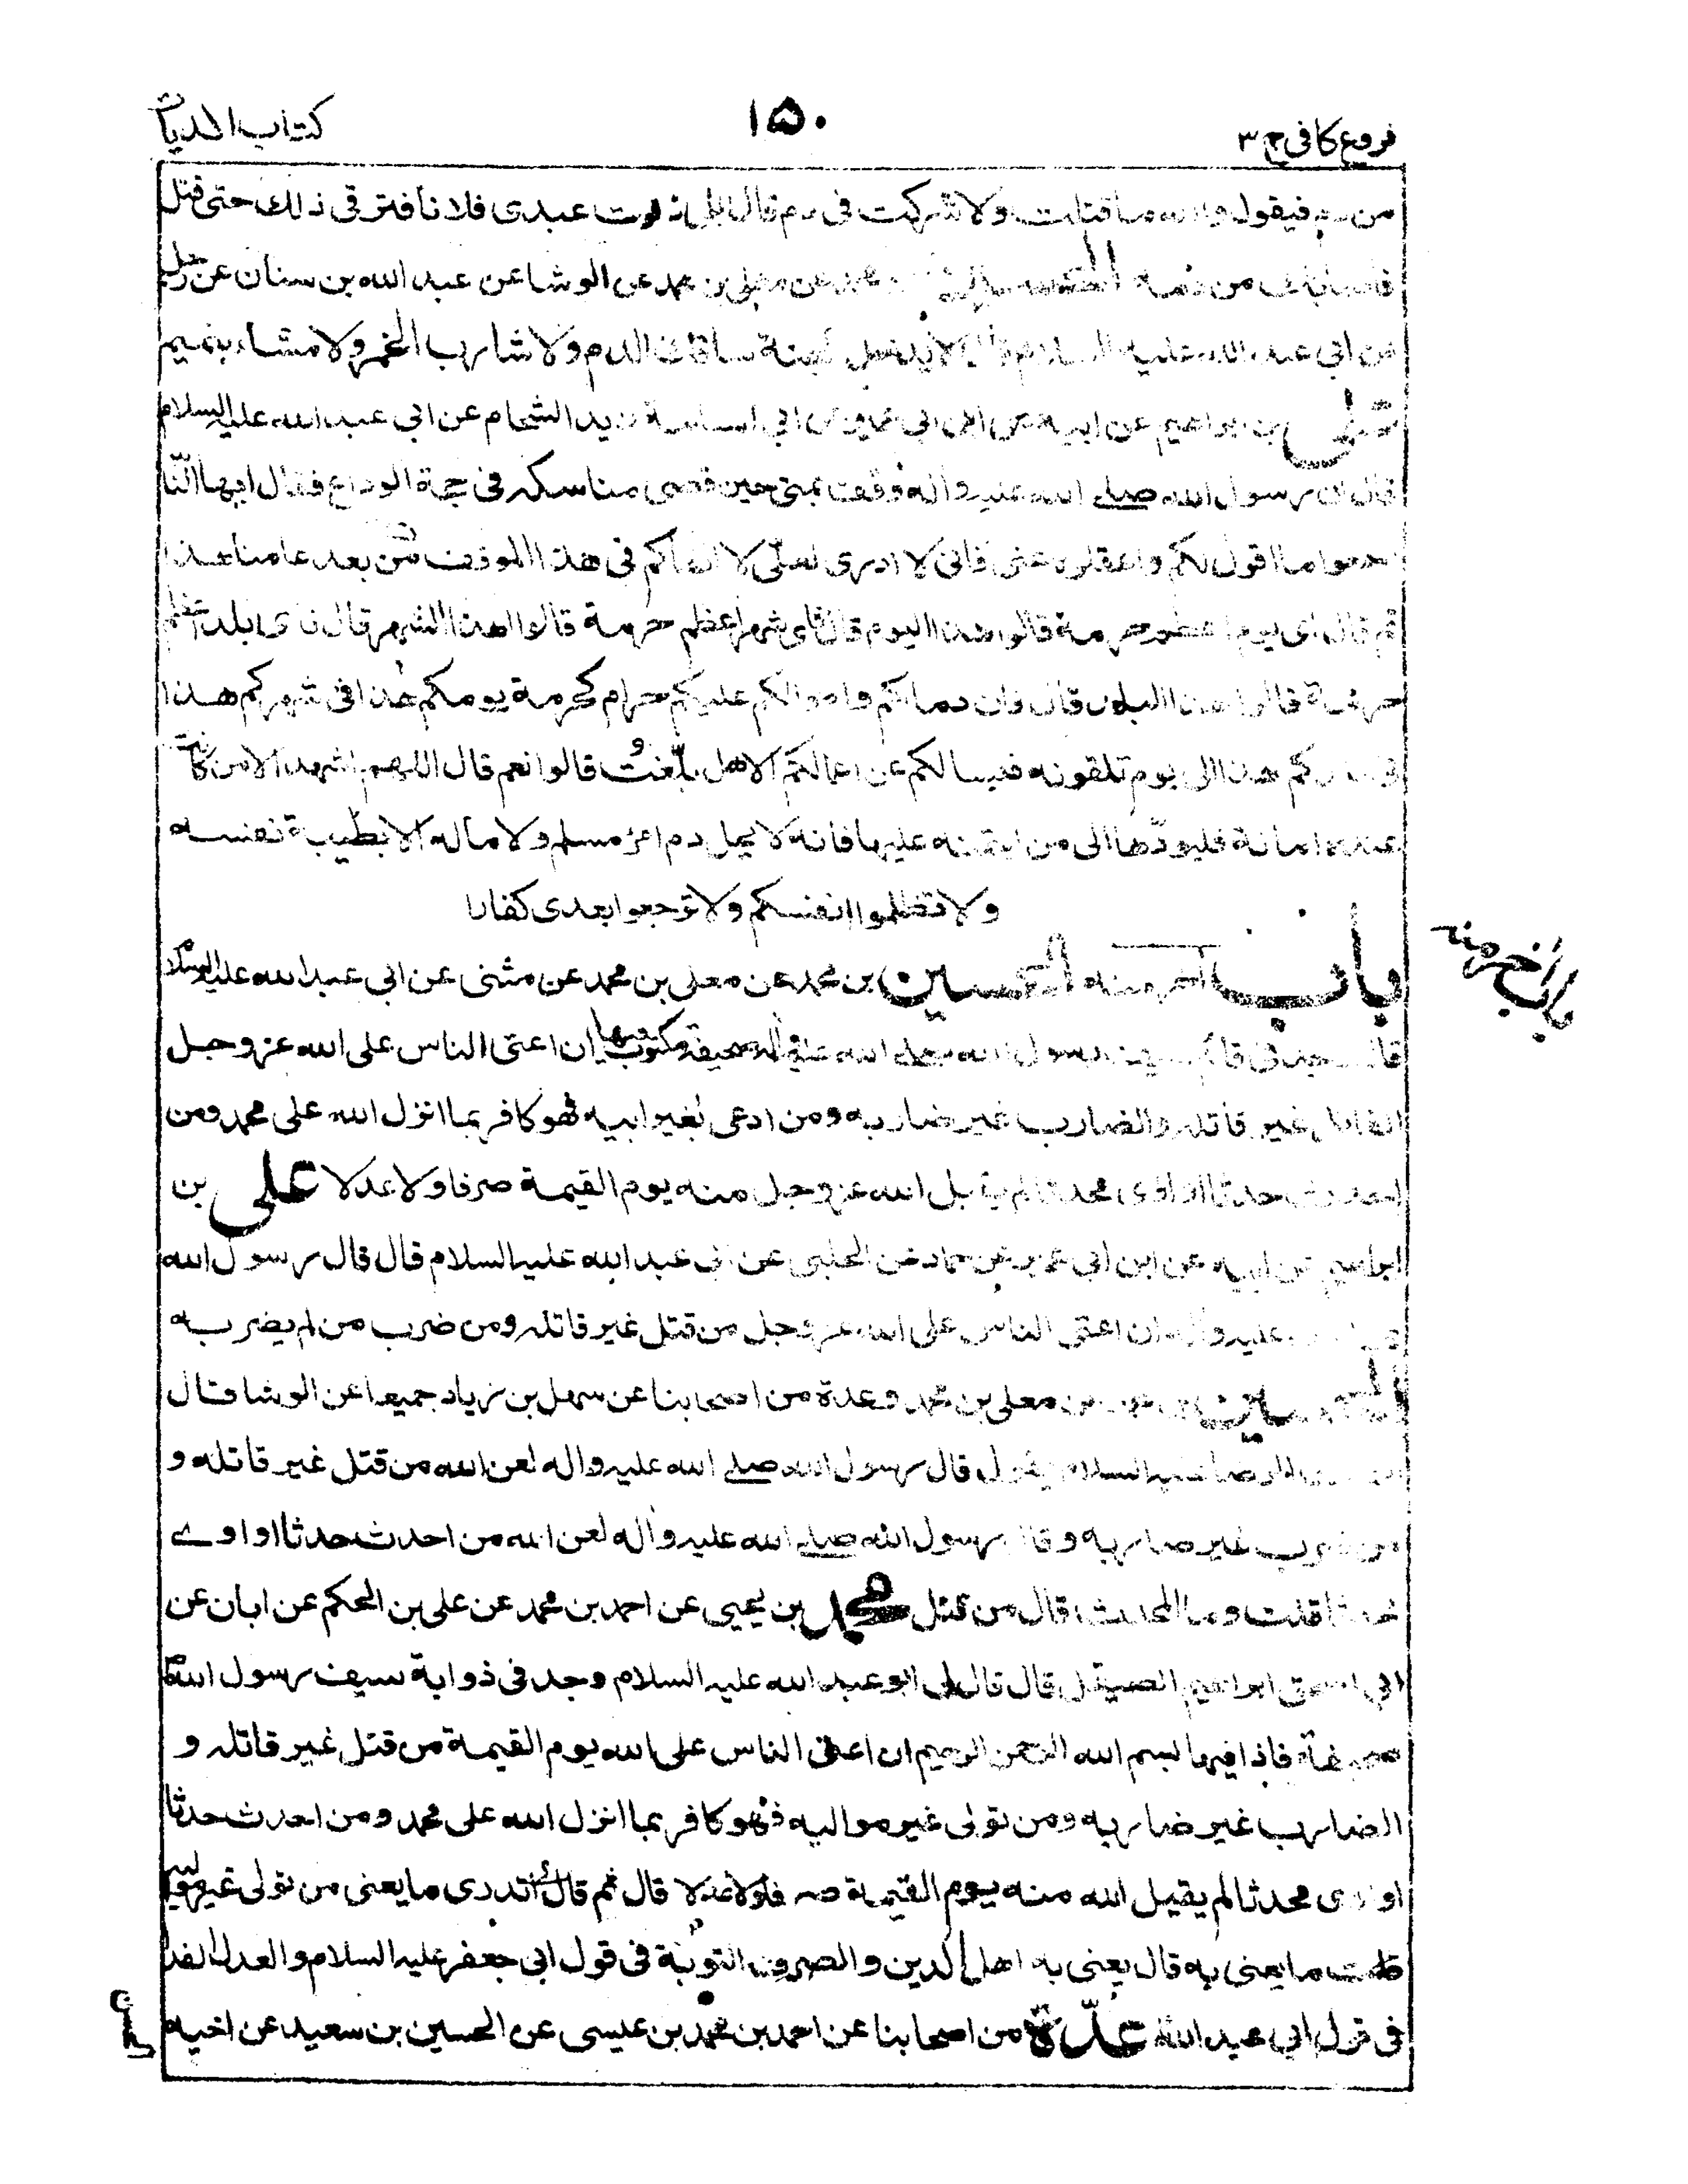 فروع كافى ج ٣
١٥٠
كتاب الديات
من فيقول والله ما قتلت ولا شركت فى دم قال بلى ذكرت عبدى فلانا فترقى ذلك حتى قتل
من محمد عن معلى بن محمد عن الوشا عن عبد الله بن سنان عن رجل
عن ابى عبد الله عليه السلام لا يدخل الجنة سافك الدم ولا شارب الخمر ولا مشاء بنميم
على بن ابراهيم عن ابيه عن ابن ابى عمير عن ابى اسامة زيد الشحام عن ابى عبد الله عليه السلام
قال ان رسول الله صلے الله عليه واله وقف بمنى حين قضى مناسكه فى حجة الوداع فقال ايها النا
ما اقول لكم واعقلوه عنى فانى لا ادرى لعلى لا القاكم فى هذا الموقف من بعد عامنا هذا
ثم قال اى يوم اعظم حرمة قالوا هذا اليوم قال فاى شهر اعظم حرمة قالوا هذا الشهر قال فاى بلد اعظم
حرمة قالوا هذا البلد قال فان دماءكم واموالكم عليكم حرام كحرمة يومكم هذا فى شهركم هذا
هذا الى يوم تلقونه فيسالكم عن اعمالكم الا هل بلغت قالوا نعم قال اللهم اشهد الا من كانت
عنده امانة فليودها الى من ائتمنه عليها فانه لا يحل دم امرء مسلم ولا ماله الا بطيبة نفسه
ولا تظلموا انفسكم ولا ترجعوا بعدى كفارا
باب اخر منه
باب اخر منه الحسين بن محمد عن معلى بن محمد عن مثنى عن ابى عبد الله عليه السلام
قال وجد فى قائم سيف رسول الله صلے الله عليه واله صحيفة مكتوب فيها ان اعتى الناس على الله عز وجل
القاتل غير قاتله والضارب غير ضاربه ومن ادعى لغير ابيه فهو كافر بما انزل الله على محمد ومن
احدث حدثا او اوى محدثا لم يقبل الله عز وجل منه يوم القيمة صرفا ولا عدلا على بن
ابراهيم عن ابيه عن ابن ابى عمير عن حماد عن الحلبى عن ابى عبد الله عليه السلام قال قال رسول الله
عليه واله ان اعتى الناس على الله عز وجل من قتل غير قاتله ومن ضرب من لم يضربه
الحسين بن محمد عن معلى بن محمد وعدة من اصحابنا عن سهل بن زياد جميعا عن الوشا قال
الرضا عليه السلام يقول قال رسول الله صلے الله عليه واله لعن الله من قتل غير قاتله و
من ضرب غير ضاربه وقال رسول الله صلے الله عليه واله لعن الله من احدث حدثا او اوے
محدثا قلت وما المحدث قال من قتل محمد بن يحيى عن احمد بن محمد عن على بن الحكم عن ابان عن
ابى اسحق ابراهيم الصيقل قال قال لى ابو عبد الله عليه السلام وجد فى ذوابة سيف رسول الله ص
صحيفة فاذا فيها بسم الله الرحمن الرحيم ان اعتى الناس على الله يوم القيمة من قتل غير قاتله و
الضارب غير ضاربه ومن تولى غير مواليه فهو كافر بما انزل الله على محمد ومن احدث حدثا
او اوى محدثا لم يقبل الله منه يوم القيمة صرفا ولا عدلا قال ثم قال لى اتدرى ما يعنى من تولى غير مواليه
قلت ما يعنى به قال يعنى به اهل الدين والصرف التوبة فى قول ابى جعفر عليه السلام والعدل الفدا
فى قول ابى عبد الله عدة من اصحابنا عن احمد بن محمد بن عيسى عن الحسين بن سعيد عن اخيه